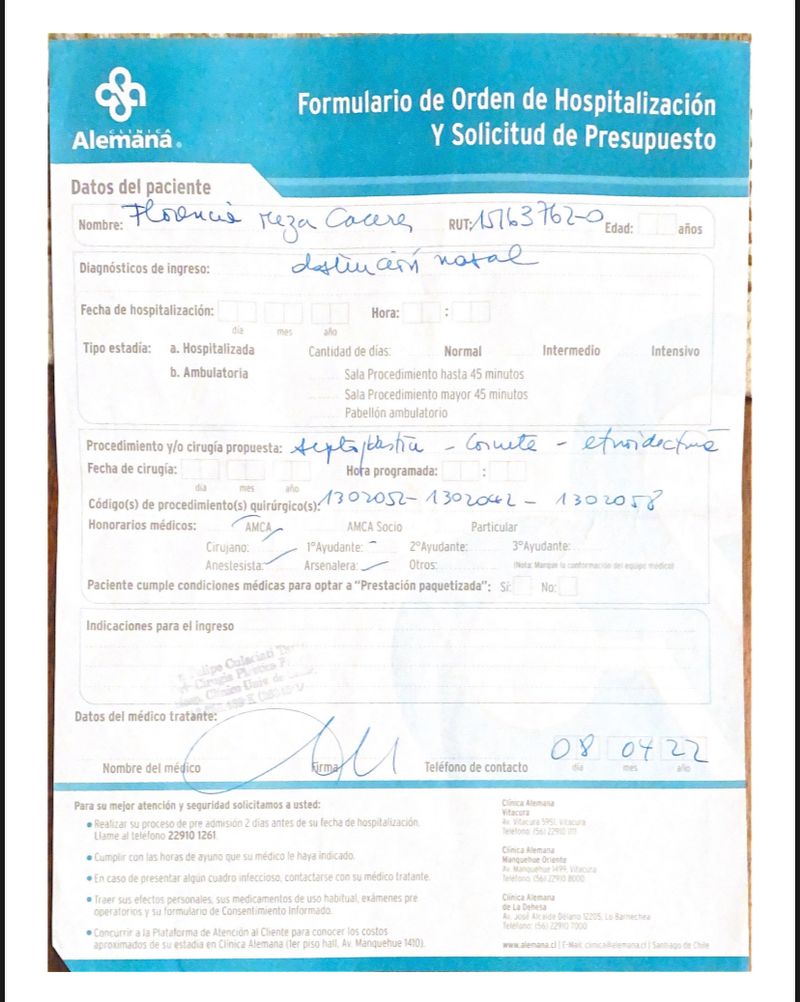 CLINICA
Alemana
Formulario de Orden de Hospitalización
Y Solicitud de Presupuesto
Datos del paciente
Nombre: Florencia Meza Caceres RUT: 15163762-0 Edad: años
Diagnósticos de ingreso: obstrucción nasal
Fecha de hospitalización: Hora: :
día mes año
Tipo estadía: a. Hospitalizada Cantidad de días: Normal Intermedio Intensivo
b. Ambulatoria Sala Procedimiento hasta 45 minutos
Sala Procedimiento mayor 45 minutos
Pabellón ambulatorio
Procedimiento y/o cirugía propuesta: septoplastia - Corneto - etmoidectomia
Fecha de cirugía: Hora programada: :
día mes año
Código(s) de procedimiento(s) quirúrgico(s): 1302052 - 1302042 - 1302058
Honorarios médicos: AMCA AMCA Socio Particular
Cirujano: 1ºAyudante: 2ºAyudante: 3ºAyudante:
Anestesista: Arsenalera: Otros: (Nota: Marque la conformación del equipo médico)
Paciente cumple condiciones médicas para optar a "Prestación paquetizada": Sí: No:
Indicaciones para el ingreso
Culaciati
Cirugía Plástica
Clínica Univ. de
Datos del médico tratante:
08 04 22
Nombre del médico Firma Teléfono de contacto día mes año
Para su mejor atención y seguridad solicitamos a usted:
• Realizar su proceso de pre admisión 2 días antes de su fecha de hospitalización.
Llame al teléfono 22910 1261.
• Cumplir con las horas de ayuno que su médico le haya indicado.
• En caso de presentar algún cuadro infeccioso, contactarse con su médico tratante.
• Traer sus efectos personales, sus medicamentos de uso habitual, exámenes pre
operatorios y su formulario de Consentimiento Informado.
• Concurrir a la Plataforma de Atención al Cliente para conocer los costos
aproximados de su estadía en Clínica Alemana (1er piso hall, Av. Manquehue 1410).
Clínica Alemana
Vitacura
Av. Vitacura 5951, Vitacura
Teléfono: (56) 22910 1111
Clínica Alemana
Manquehue Oriente
Av. Manquehue 1499, Vitacura
Teléfono: (56) 22910 8000
Clínica Alemana
de La Dehesa
Av. José Alcalde Délano 12205, Lo Barnechea
Teléfono: (56) 22910 7000
www.alemana.cl | E-Mail: clinica@alemana.cl | Santiago de Chile